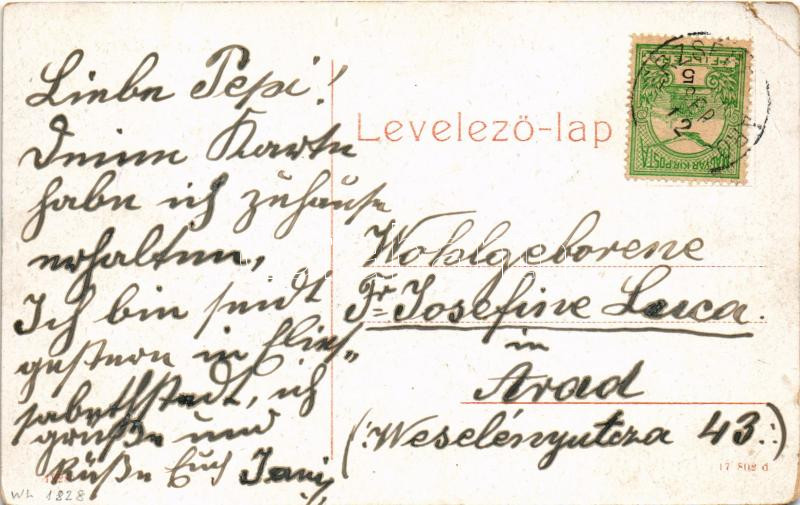 Liebe Pepi!
Deine Karte
habe ich zuhause
erhalten,
Ich bin seit
gestern in Elies„
sabethstadt, ich
grüße und
Küße Euch
Levelező-lap
Wohlgeborene
Fr= Josefine Luca.
in
Arad
(:Weselényutcza 43.:)
MAGYAR KIR. POSTA
5
SEP
12
17 808 d
WL 1828